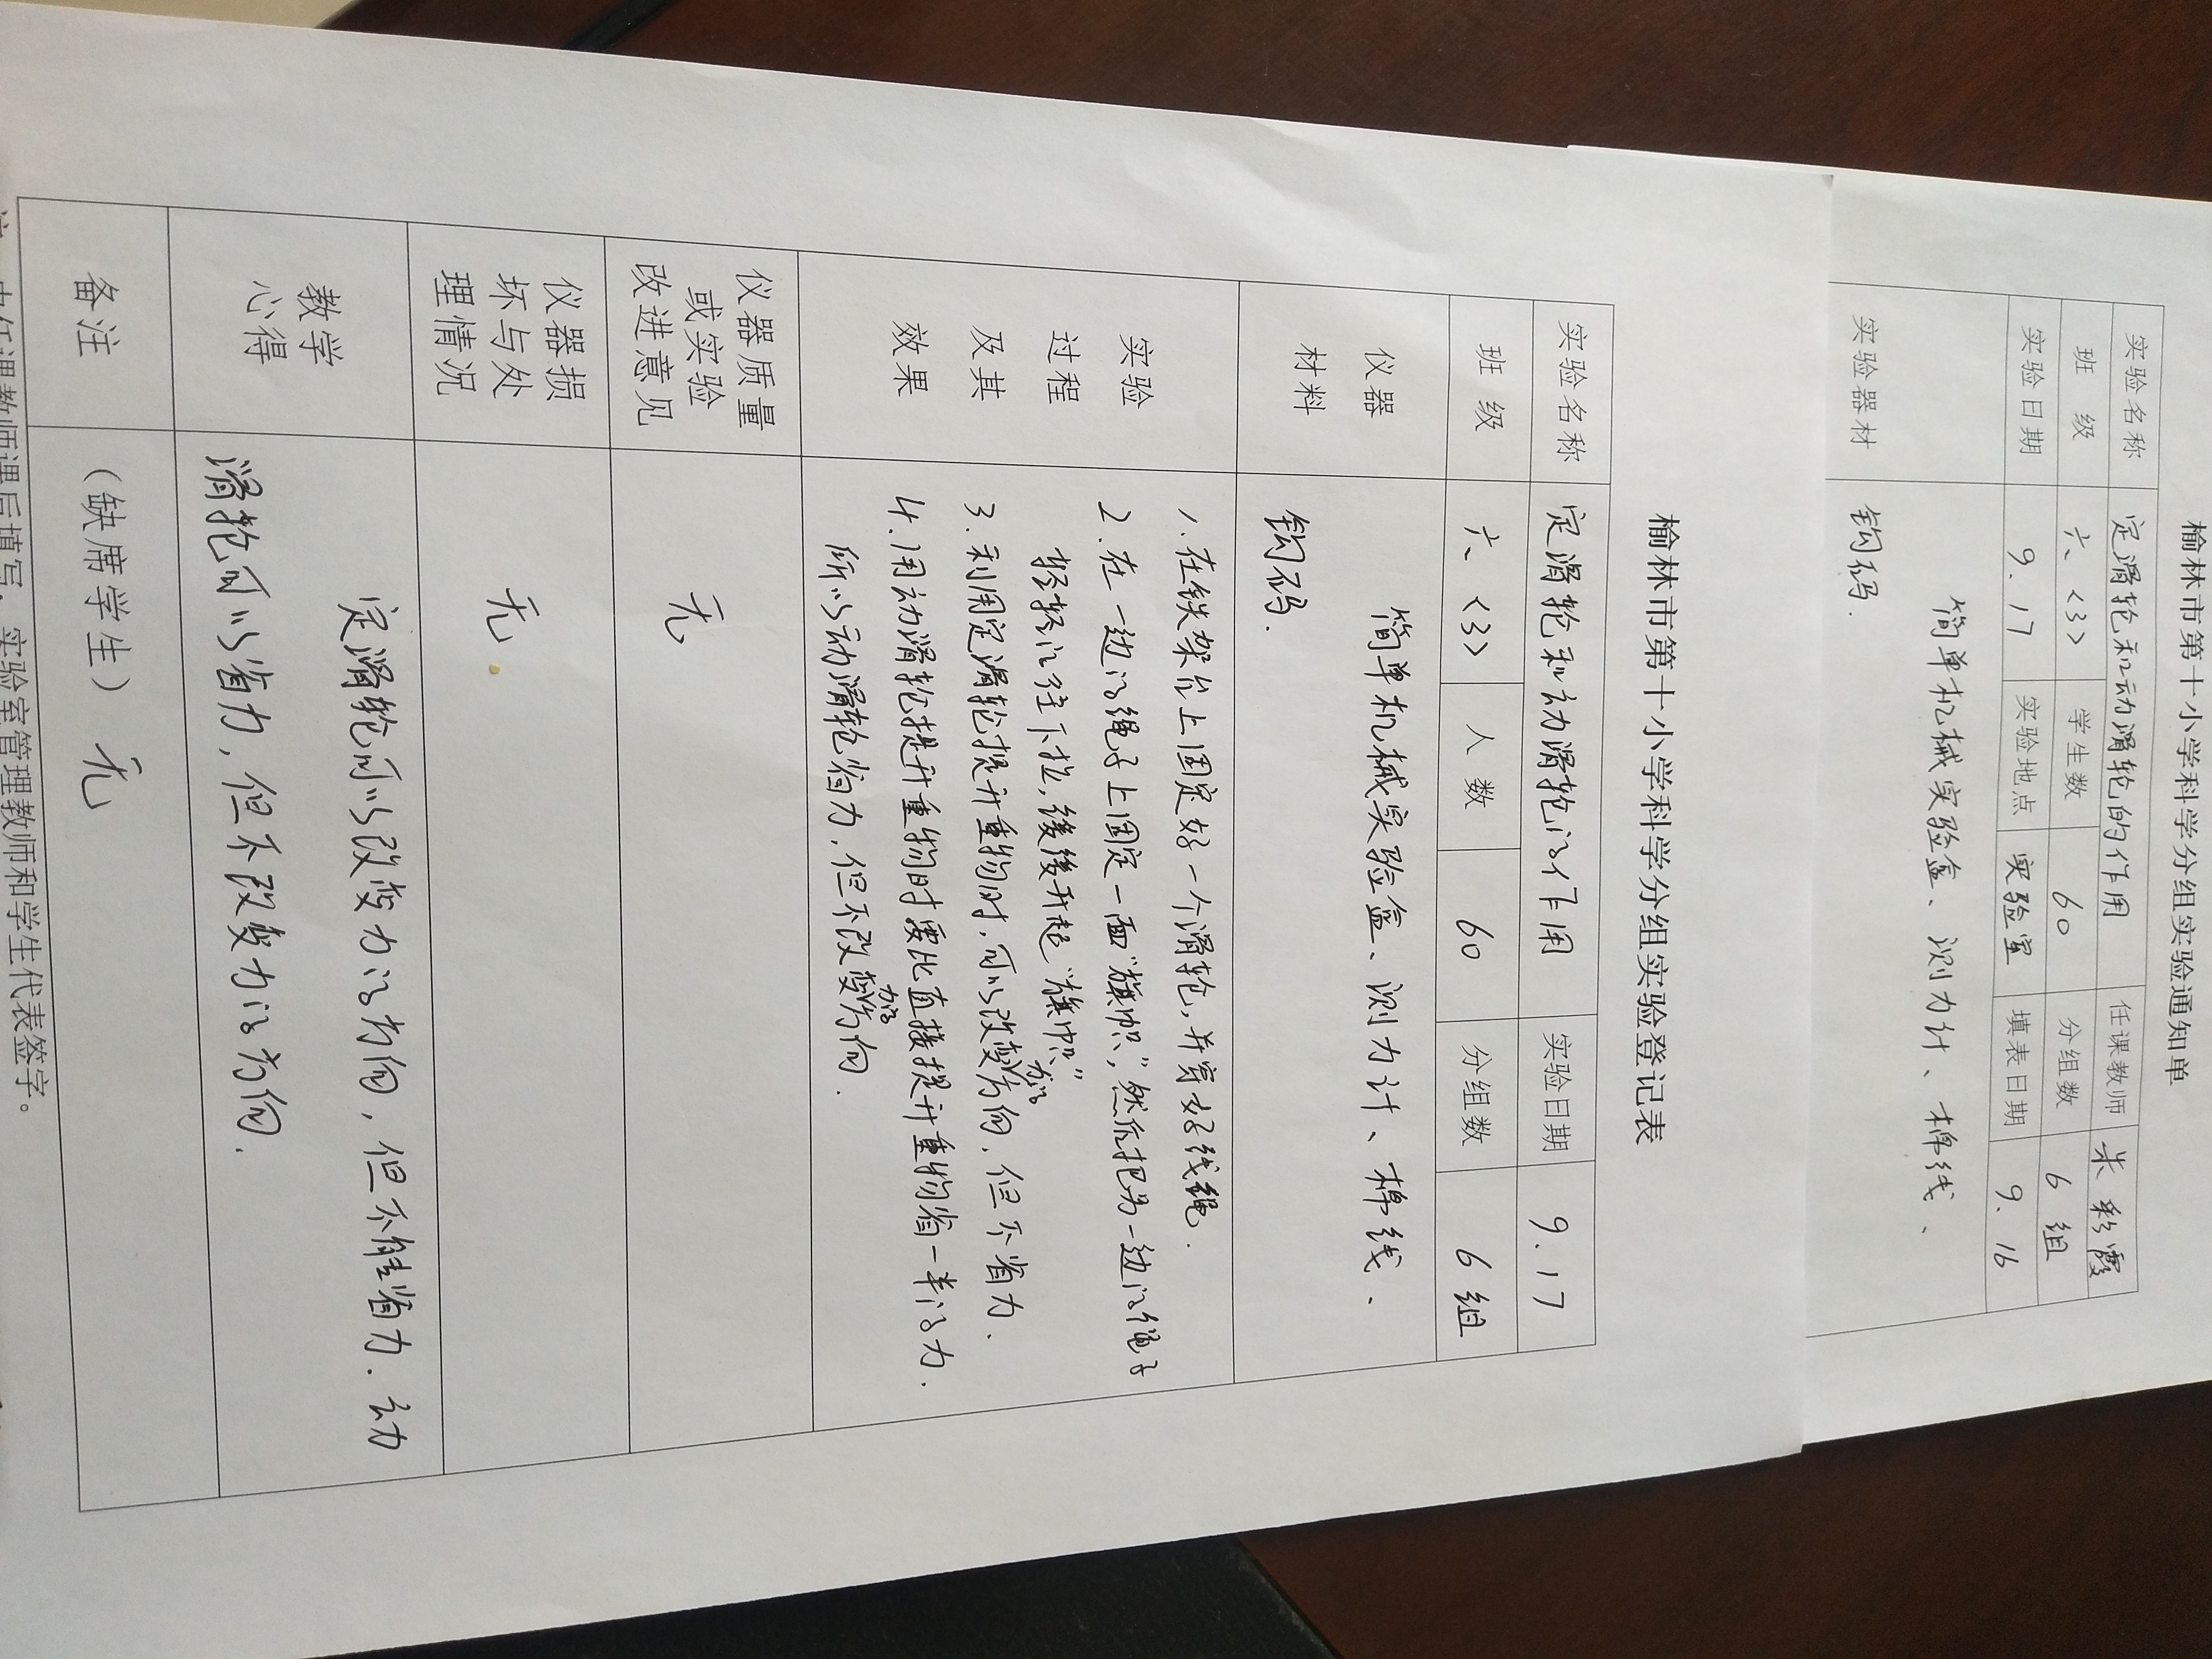 榆林市第十小学科学分组实验通知单
实验名称 定滑轮和动滑轮的作用 任课教师 米彩霞
班 级 六〈3〉 学生数 60 分组数 6组
实验日期 9.17 实验地点 实验室 填表日期 9.16
实验器材 简单机械实验盒、测力计、棉线、
钩码.
榆林市第十小学科学分组实验登记表
实验名称 定滑轮和动滑轮的作用 实验日期 9.17
班 级 六〈3〉 人 数 60 分组数 6组
仪器
材料
简单机械实验盒、测力计、棉线、
钩码.
实验
过程
及其
效果
1.在铁架台上固定好一个滑轮,并穿好线绳.
2.在一边的绳子上固定一面“旗帜”,然后把另一边的绳子
轻轻的往下拉,缓缓升起“旗帜”
3.利用定滑轮提升重物时,可以改变力的方向,但不省力、
4.用动滑轮提升重物时要比直接提升重物省一半的力.
所以动滑轮省力,但不改变力的方向.
仪器质量
或实验
改进意见
无
仪器损
坏与处
理情况
无.
教学
心得
定滑轮可以改变力的方向,但不能省力.动
滑轮可以省力,但不改变力的方向.
备注
(缺席学生) 无
任课教师课后填写,实验室管理教师和学生代表签字。